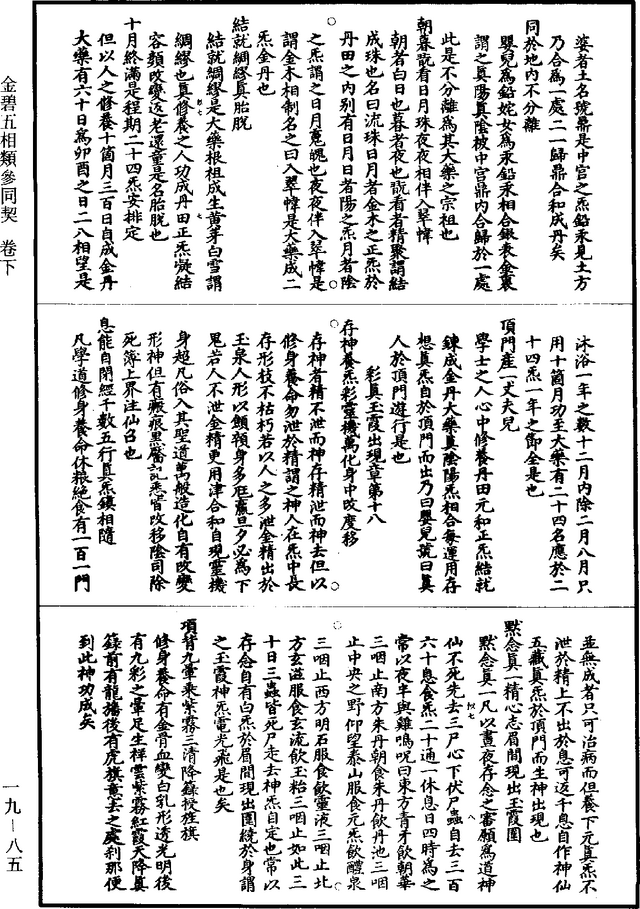 金碧五相類參同契 卷下
婆者土名號鼎是中宮之炁鉛汞見土方
乃合為一處二一歸鼎合和成丹矣
同於地內不分離
嬰兒為鉛姹女為汞鉛汞相合鍬表金裏
謂之真陽真陰被中宮鼎內合歸於一處
此是不分離為其大藥之宗祖也
朝暮翫看日月珠夜夜相伴入翠幃
朝者白日也暮者夜也翫看者精聚謂結
成珠也名曰流珠日月者金木之正炁於
丹田之內別有日月日者陽之炁月者陰
之炁謂之日月䰟魄也夜夜伴入翠幃是
謂金木相制名之曰入翠幃是大藥成二
炁金丹也
結就綢繆真胎脫
結就綢繆是大藥根祖成生黃芽白雪謂
綢繆也真修養之人功成丹田正炁凝結
容顏改變返老還童是名胎脫也
十月終滿是程期二十四炁安排定
但以人之修養十箇月三百日自成金丹
大藥有六十日為卯酉之日二八相望是
沐浴一年之數十二月內除二月八月只
用十箇月功至大藥有二十四名應於二
十四炁一年之節全是也
頂門產一𠀋夫兒
學士之人心中修養丹田元和正炁結就
鍊成金丹大藥真陰陽炁相合每運用存
想真炁自於頂門而出乃曰嬰兒號曰真
人於頂門遊行是也
彩真玉霞出現章第十八
存神養炁彩靈機萬化身中改度移
存神者精不泄而神存精泄而神去但以
修身養命勿泄於精謂之神人在炁中長
存形枝不枯朽若以人之多泄金精出於
玉泉人形以顦顇身多尫羸旦夕必為下
鬼若人不泄金精更用津合和自現靈機
身超凡俗入其聖道萬般造化自有改變
形神但有瘢痕黑黶𧿮悉皆改移陰司除
死簿上界注仙名也
息能自閉經千數五行真炁鎮相隨
凡學道修身養命休粮絕食有一百一門
並無成者只可治病而但養下元真炁不
泄於精上不出於息可返千息自作神仙
五藏真炁於頂門而生神出現也
默念真一精心志眉間現出玉霞圍
默念真一凡以晝夜存念之審願為道神
仙不死先去三尸心下伏尸蟲自去三百
六十息食炁二十通一休息日四時為之
常以夜半與雞鳴呪曰東方青牙飲朝華
三咽止南方朱丹朝食朱丹飲丹池三咽
止中央之野仰望泰山服食元炁飲醴泉
三咽止西方明石服食飲靈液三咽止北
方玄滋服食玄流飲玉粭三咽止如此三
十日三蟲皆死尸走去神炁自定也常以
存念自有白炁於眉間現出圍繞於身謂
之玉霞神炁電光飛是也矣
項背九暈乘紫霧三清降籙授旌旗
修身養命有金骨血變白乳形透光明後
有九彩之暈足生祥雲紫霧紅霞天降真
籙前有龍旛後有虎旗意去之處剎那便
到此神功成矣
一九-八五